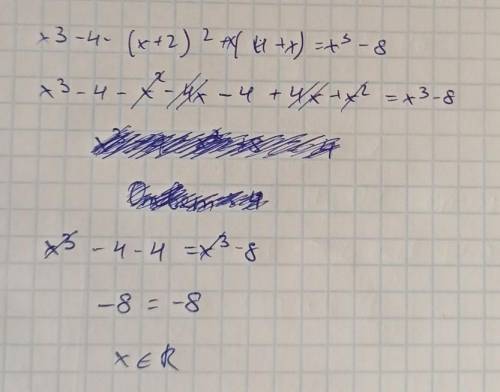 x3 - 4 - (x+2)² + x(4+x) = x³ - 8
x³ - 4 - x² - 4x - 4 + 4x + x² = x³ - 8
x³ - 4 - 4 = x³ - 8
-8 = -8
x ∈ R